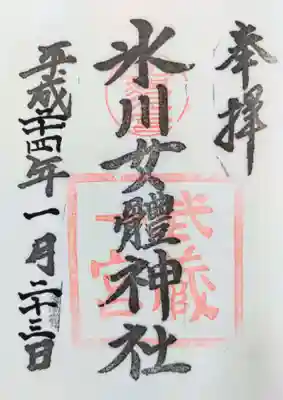 奉拝
氷川女體神社
武蔵一宮
平成二十四年一月二十三日